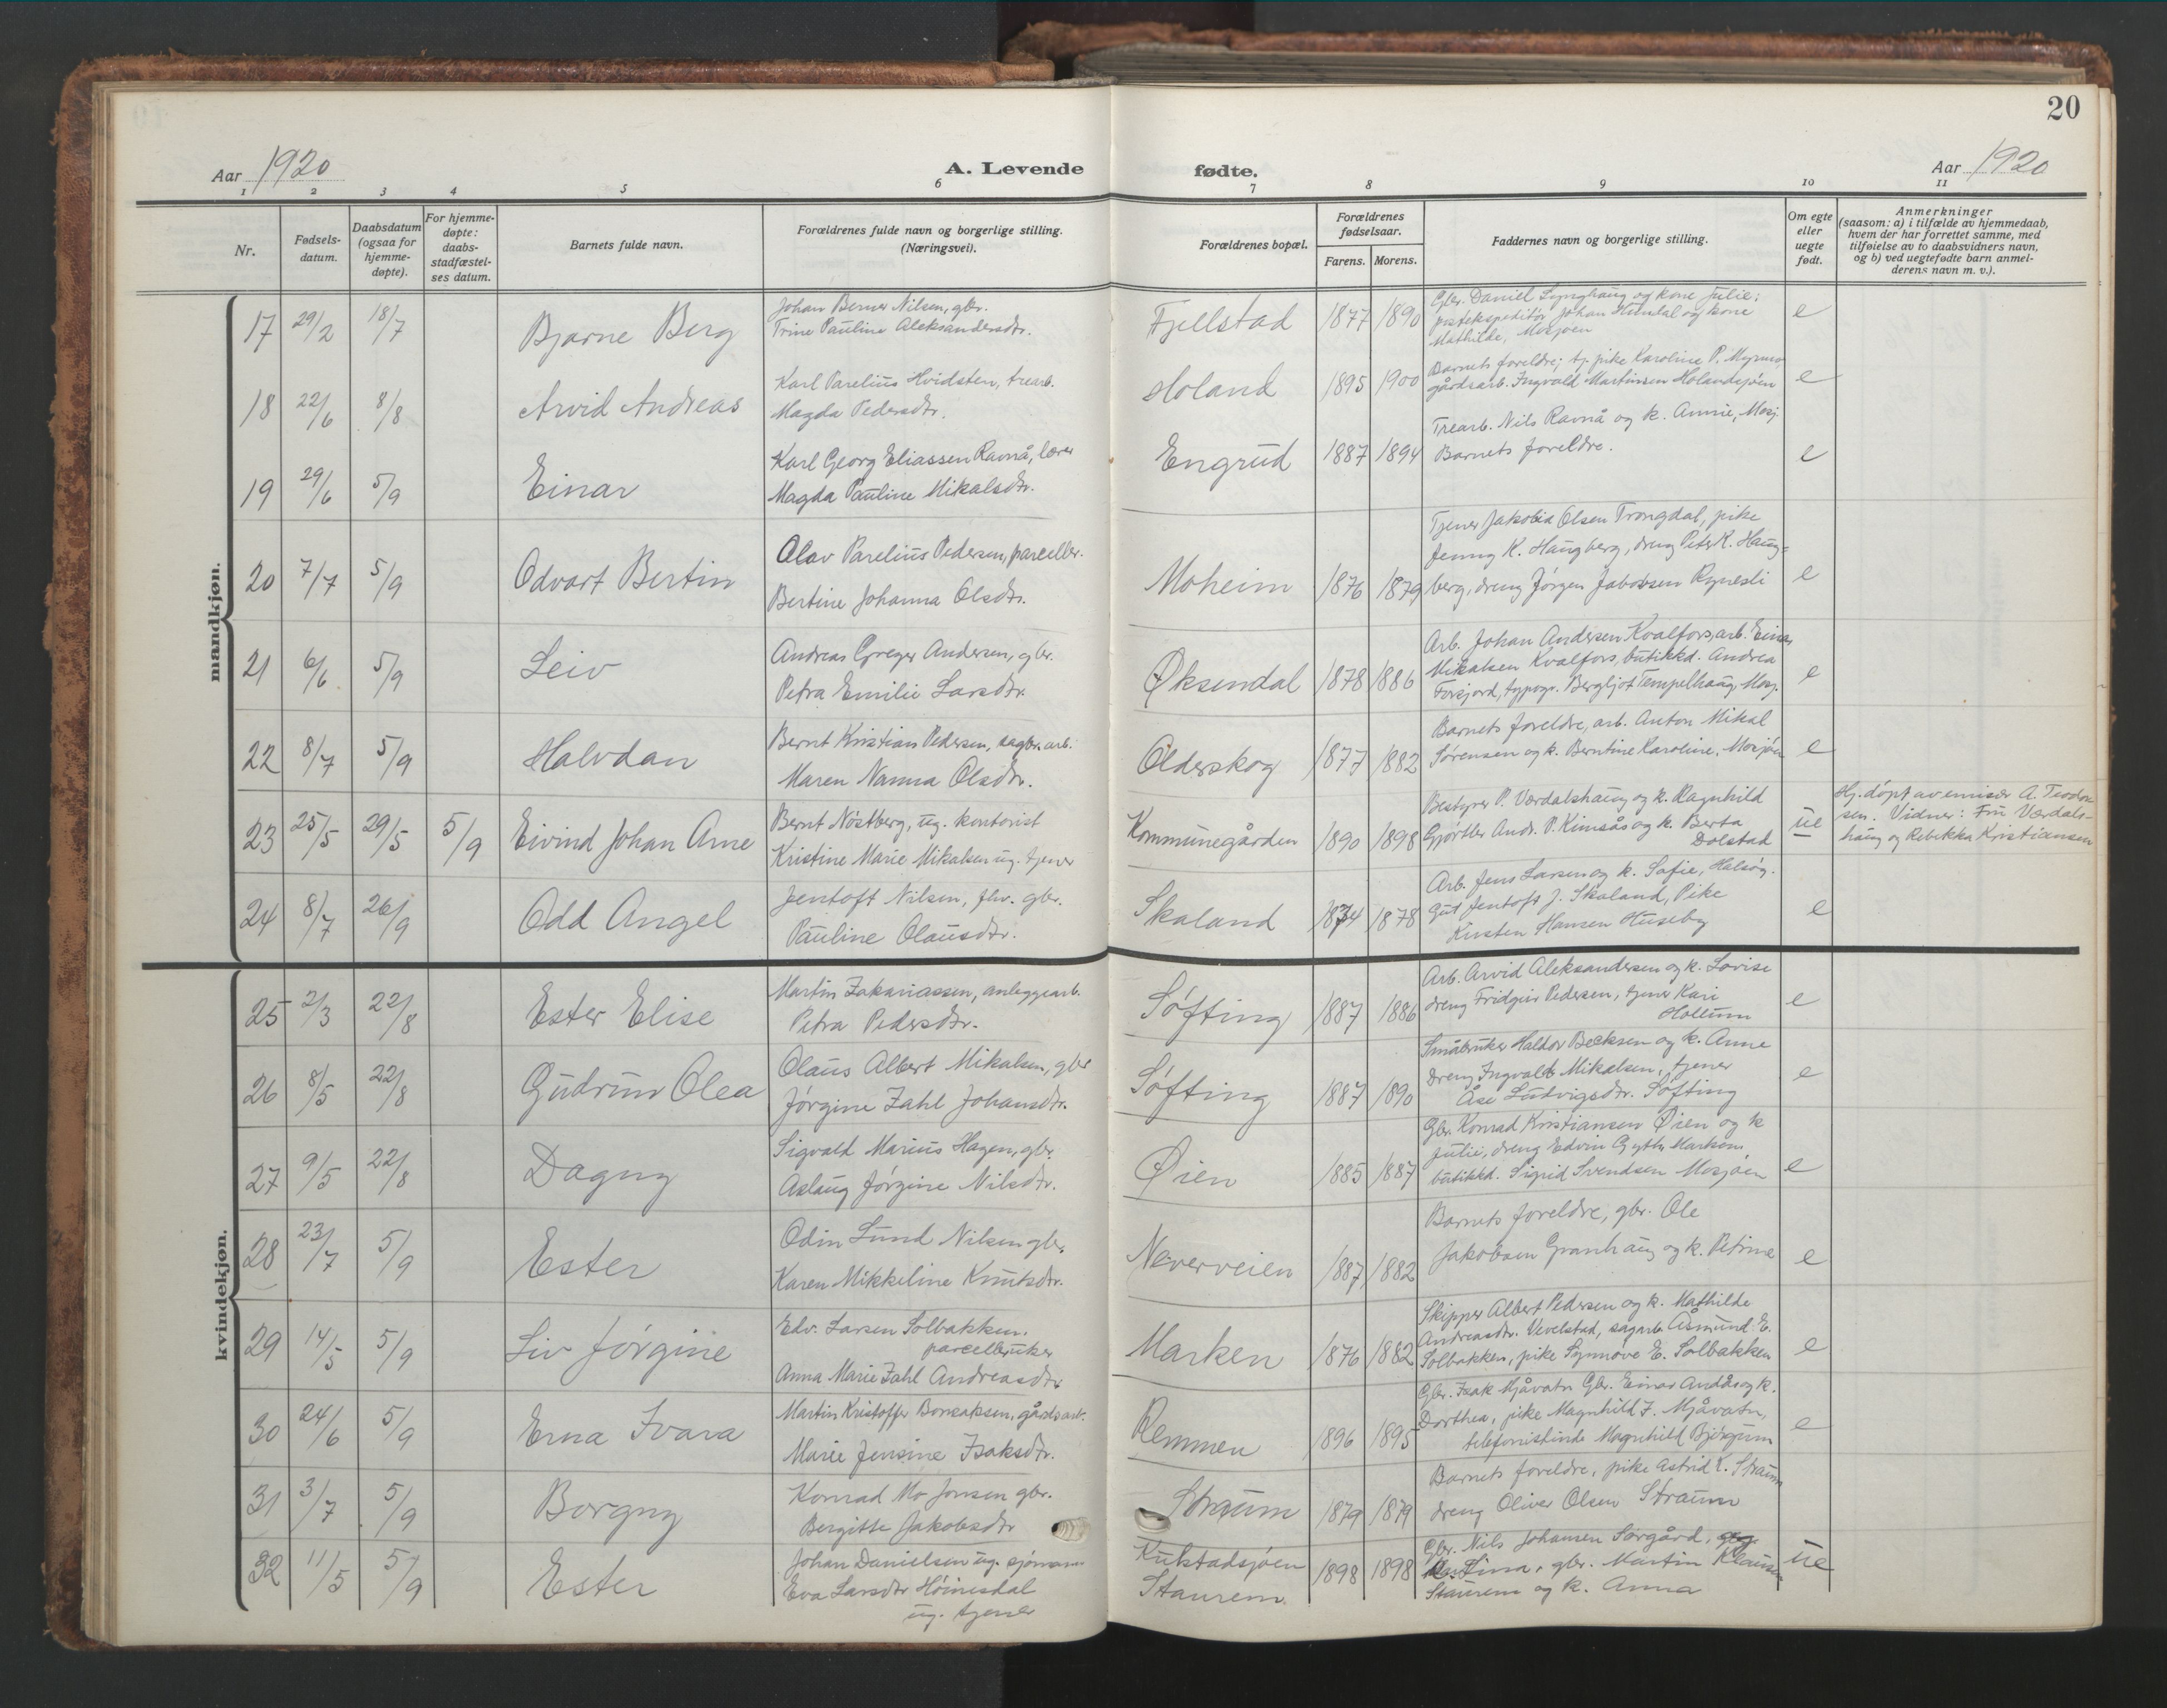 20
Aar 1920
A. Levende fødte.
Aar 1920
1 2 3 4 5 6 7 8 9 10 11
Nr.
Fødsels-
datum.
Daabsdatum
(ogsaa for
hjemme-
døpte).
For hjemme-
døpte:
daabs-
stadfæstel-
ses datum.
Barnets fulde navn.
Forældrenes fulde navn og borgerlige stilling.
(Næringsvei).
Forældrenes bopæl.
Forældrenes
fødselsaar.
Farens. Morens.
Faddernes navn og borgerlige stilling.
Om egte
eller
uegte
født.
Anmerkninger
(saasom: a) i tilfælde av hjemmedaab,
hvem der har forrettet samme, med
tilføielse av to daabsvidners navn,
og b) ved uegtefødte barn anmel-
derens navn m. v.).
mandkjøn.
17 29/2 18/7 Bjarne Berg
Johan Berner Nilsen, gbr.
Trine Pauline Aleksandersdtr.
Fjellstad 1877 1890
Gbr. Daniel Lynghaug og kone Julie;
postekspeditör Johan Hundal og kone
Mathilde, Mosjøen
e
18 22/6 8/8 Arvid Andreas
Karl Parelius Hvidsten, trearb.
Magda Pedersdtr.
Holand 1895 1900
Barnets foreldre; tj. pike Karoline P. Myrmo,
gårdsarb. Ingvald Martinsen Holandsjøen
e
19 29/6 5/9 Einar
Karl Georg Eliassen Ravnå, lærer
Magda Pauline Mikalsdtr.
Engrud 1887 1894
Trearb. Nils Ravnå og k. Annie, Mosj.
Barnets foreldre.
e
20 7/7 5/9 Odvart Bertin
Olav Parelius Pedersen, parceller.
Bertine Johanna Olsdtr.
Moheim 1876 1879
Tjener Jakobia Olsen Trongdal, pike
Jenny K. Haugberg, dreng Peter K. Haug-
berg, dreng Jörgen Jakobsen Rynesli
e
21 6/6 5/9 Leiv
Andreas Greger Andersen, gbr.
Petra Emilie Larsdtr.
Øksendal 1878 1886
Arb. Johan Andersen Kvalfors, arb. Einar
Mikalsen Kvalfors, butikkd. Andrea
Forsjord, typogr. Bergljot Tempelhaug, Mosj.
e
22 8/7 5/9 Halvdan
Bernt Kristian Pedersen, sagbr. arb.
Maren Nanna Olsdtr.
Olderskog 1877 1882
Barnets foreldre, arb. Anton Mikal
Sørensen og k. Berntine Karoline, Mosjöen
e
23 25/5 29/5 5/9 Eivind Johan Arne
Bernt Nöstberg, ug. kontorist
Kristine Marie Mikalsen ug. tjener
Kommunegården 1890 1898
Bestyrer P. Værdalshaug og k. Ragnhild
Gjörtler And. P. Kimsås og k. Berta
Dolstad
ue
Hj. döpt av emisær A. Teodor
sen. Vidner: Fru Værdals-
haug og Rebekka Kristiansen
24 8/7 26/9 Odd Angel
Jentoft Nilsen, fhv. gbr.
Pauline Olausdtr.
Skaland 1874 1878
Arb. Jens Larsen og k. Sofie, Halsöy.
Gut Jentoft J. Skaland, Pike
Kirsten Hansen Huseby
e
kvindekjøn.
25 2/3 22/8 Ester Elise
Martin Zakariassen, anleggsarb.
Petra Pedersdtr.
Söfting 1887 1886
Arb. Arvid Aleksandersen og k. Lovise
dreng Fridgeir Pedersen, tjener Kari
Holtum
e
26 8/5 22/8 Gudrun Olea
Olaus Albert Mikalsen, gbr
Jörgine Zahl Johansdtr.
Söfting 1887 1890
Småbruker Haldor Becksen og k. Anne
dreng Ingvald Mikalsen, tjener
Åse Ludvigsdtr. Söfting
e
27 9/5 22/8 Dagny
Sigvald Marius Hagen, gbr.
Aslaug Jörgine Nilsdtr.
Øien 1885 1887
Gbr. Konrad Kristiansen Øien og k
Julie, dreng Edvin Marken
butikkd. Sigrid Svendsen Mosjöen
e
28 23/7 5/9 Ester
Odin Lund Nilsen gbr.
Karen Mikkeline Knutsdtr.
Neverveien 1887 1882
Barnets foreldre, gbr. Ole
Jakobsen Granhaug og k. Petrine
e
29 14/5 5/9 Liv Jörgine
Edv. Larsen Solbakken.
parcelbruker
Anna Marie Zahl Andreasdtr
Marken 1876 1882
Skipper Albert Pedersen og k. Mathilde
Andreasdtr. Vevelstad, sagarb. Åsmund E.
Solbakken, pike Synnøve E. Solbakken
e
30 24/6 5/9 Erna Ivara
Martin Kristoffer Bonsaksen, gårdsarb.
Marie Jensine Isaksdtr.
Remmen 1896 1895
Gbr. Isak Mjåvatn Gbr. Einar Andås og k.
Dorthea, pike Magnhild I. Mjåvatn,
telefonistinde Magnhild Björgum
e
31 3/7 5/9 Borgny
Konrad Mo Jonsen gbr.
Bergitte Jakobsdtr
Straum 1879 1879
Barnets foreldre, pike Astrid K. Straum
dreng Oliver Olsen Straum
32 11/5 5/9 Ester
Johan Danielsen ug. sjömann
Eva Larsdtr Höinesdal
ug. tjener
Kulstadsjøen
Staurem
1898 1898
Gbr. Nils Johansen Sørgård, og
k. Lina, gbr. Martin Klausen
Staurem og k. Anna
ue